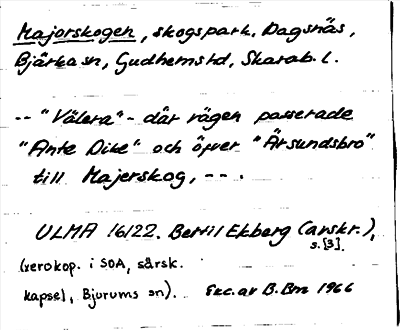 Majorskogen, skogspark. Dagsnäs,
Bjärka sn, Gudhemshd, Skarab. l.
-- "Välera" - där vägen passerade
"Ante Dike" och öfver "Årsundsbro"
till Majerskog, -- .
ULMA 16122. Bertil Ekberg (avskr.),
s. [3].
(xerokop. i SOA, särsk.
kapsel, Bjurums sn). Exc. av B. Bm 1966